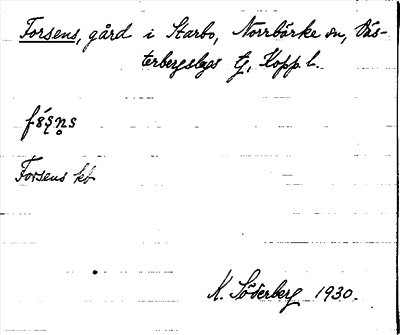 Forsens, gård i Starbo, Norrbärke sn, Väs-
terbergslags tg, Kopp. l.
fó̀ṣṇ̥s
Forsens kb
K. Söderberg 1930.